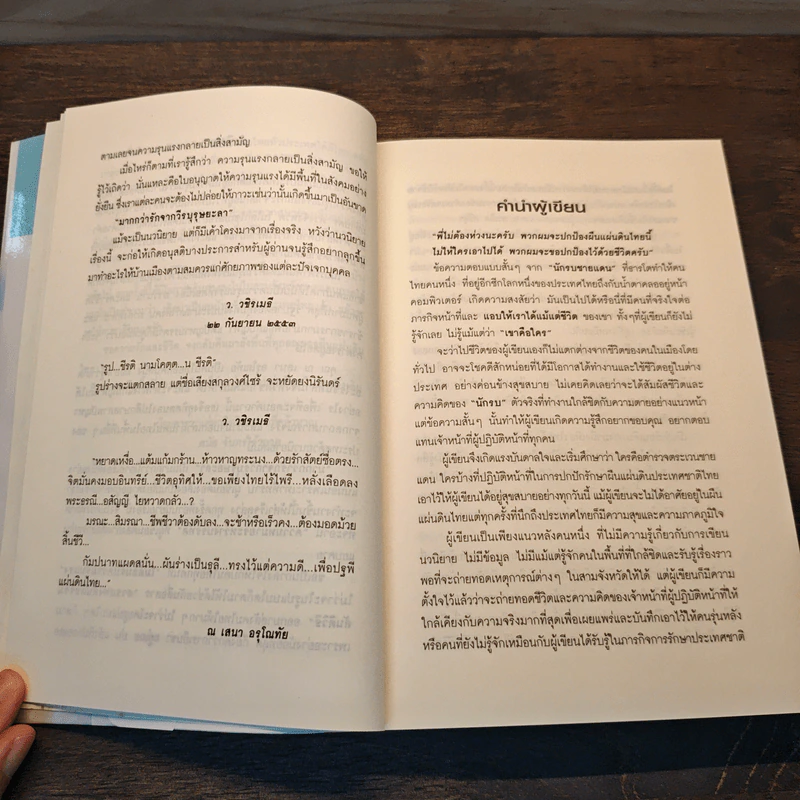 ตามเลยจนความรุนแรงกลายเป็นสิ่งสามัญ
เมื่อไหร่ก็ตามที่เรารู้สึกว่า ความรุนแรงกลายเป็นสิ่งสามัญ ขอให้
รู้ไว้เถิดว่า นั่นแหละคือใบอนุญาตให้ความรุนแรงได้มีพื้นที่ในสังคมอย่าง
ยั่งยืน ซึ่งเราแต่ละคนจะต้องไม่ปล่อยให้ภาวะเช่นว่านั้นเกิดขึ้นมาเป็นอันขาด
"มากกว่ารักจากวีรบุรุษยะลา"
แม้จะเป็นนวนิยาย แต่ก็มีเค้าโครงมาจากเรื่องจริง หวังว่านวนิยาย
เรื่องนี้ จะก่อให้เกิดอนุสติบางประการสำหรับผู้อ่านจนรู้สึกอยากลุกขึ้น
มาทำอะไรให้บ้านเมืองตามสมควรแก่ศักยภาพของแต่ละปัจเจกบุคคล
ว. วชิรเมธี
๒๒ กันยายน ๒๕๕๓
"รูป...ชีรติ นามโคตฺต...น ชีรติ"
รูปร่างจะแตกสลาย แต่ชื่อเสียงสกุลวงศ์ไซร้ จะหยัดยงนิรันดร์
ว. วชิรเมธี
"หยาดเหงื่อ...แต้มแก้มกร้าน...ห้าวหาญทระนง...ด้วยรักสัตย์ซื่อตรง...
จิตมั่นคงมอบอินทรีย์...ชีวิตอุทิศให้...ขอเพียงไทยไร้ไพรี...หลั่งเลือดลง
พระธรณี...อสัญญี ไยหวาดกลัว...?
มรณะ...สิมรณา...ชีพชีวาต้องดับลง...จะช้าหรือเร็วคง...ต้องมอดม้วย
สิ้นชีวี...
กัมปนาทแผดสนั่น...ผันร่างเป็นธุลี...ทรงไว้แต่ความดี...เพื่อปฐพี
แผ่นดินไทย..."
ณ เสนา อรุโณทัย
คำนำผู้เขียน
"พี่ไม่ต้องห่วงนะครับ พวกผมจะปกป้องผืนแผ่นดินไทยนี้
ไม่ให้ใครเอาไปได้ พวกผมจะขอปกป้องไว้ด้วยชีวิตครับ"
ข้อความตอบแบบสั้นๆ จาก "นักรบชายแดน" ที่ฮารดโตทำให้คน
ไทยคนหนึ่ง ที่อยู่อีกซีกโลกหนึ่งของประเทศไทยถึงกับน้ำตาคลออยู่หน้า
คอมพิวเตอร์ เกิดความสงสัยว่า มันเป็นไปได้หรือนี่ที่มีคนที่จริงใจต่อ
ภารกิจหน้าที่และ แอบให้เราได้แม้แต่ชีวิต ของเขา ทั้งๆที่ผู้เขียนก็ยังไม่
รู้จักเลย ไม่รู้แม้แต่ว่า "เขาคือใคร"
จะว่าไปชีวิตของผู้เขียนเองก็ไม่แตกต่างจากชีวิตของคนในเมืองโดย
ทั่วไป อาจจะโชคดีสักหน่อยที่ได้มีโอกาสได้ทำงานและใช้ชีวิตอยู่ในต่าง
ประเทศ อย่างค่อนข้างสุขสบาย ไม่เคยคิดเลยว่าจะได้สัมผัสชีวิตและ
ความคิดของ "นักรบ" ตัวจริงที่ทำงานใกล้ชิดกับความตายอย่างแนวหน้า
แต่ข้อความสั้นๆ นั้นทำให้ผู้เขียนเกิดความรู้สึกอยากขอบคุณ อยากตอบ
แทนเจ้าหน้าที่ผู้ปฏิบัติหน้าที่ทุกคน
ผู้เขียนจึงเกิดแรงบันดาลใจและเริ่มศึกษาว่า ใครคือตำรวจตระเวนชาย
แดน ใครบ้างที่ปฏิบัติหน้าที่ในการปกปักรักษาผืนแผ่นดินประเทศชาติไทย
เอาไว้ให้ผู้เขียนได้อยู่สุขสบายอย่างทุกวันนี้ แม้ผู้เขียนจะไม่ได้อาศัยอยู่ในผืน
แผ่นดินไทยแต่ทุกครั้งที่นึกถึงประเทศไทยก็มีความสุขและความภาคภูมิใจ
ผู้เขียนเป็นเพียงแนวหลังคนหนึ่ง ที่ไม่มีความรู้เกี่ยวกับการเขียน
นวนิยาย ไม่มีข้อมูล ไม่มีแม้แต่รู้จักคนในพื้นที่ที่ใกล้ชิดและรับรู้เรื่องราว
พอที่จะถ่ายทอดเหตุการณ์ต่างๆ ในสามจังหวัดให้ได้ แต่ผู้เขียนก็มีความ
ตั้งใจไว้แล้วว่าจะถ่ายทอดชีวิตและความคิดของเจ้าหน้าที่ผู้ปฏิบัติหน้าที่ให้
ใกล้เคียงกับความจริงมากที่สุดเพื่อเผยแพร่และบันทึกเอาไว้ให้คนรุ่นหลัง
หรือคนที่ยังไม่รู้จักเหมือนกับผู้เขียนได้รับรู้ในภารกิจการรักษาประเทศชาติ